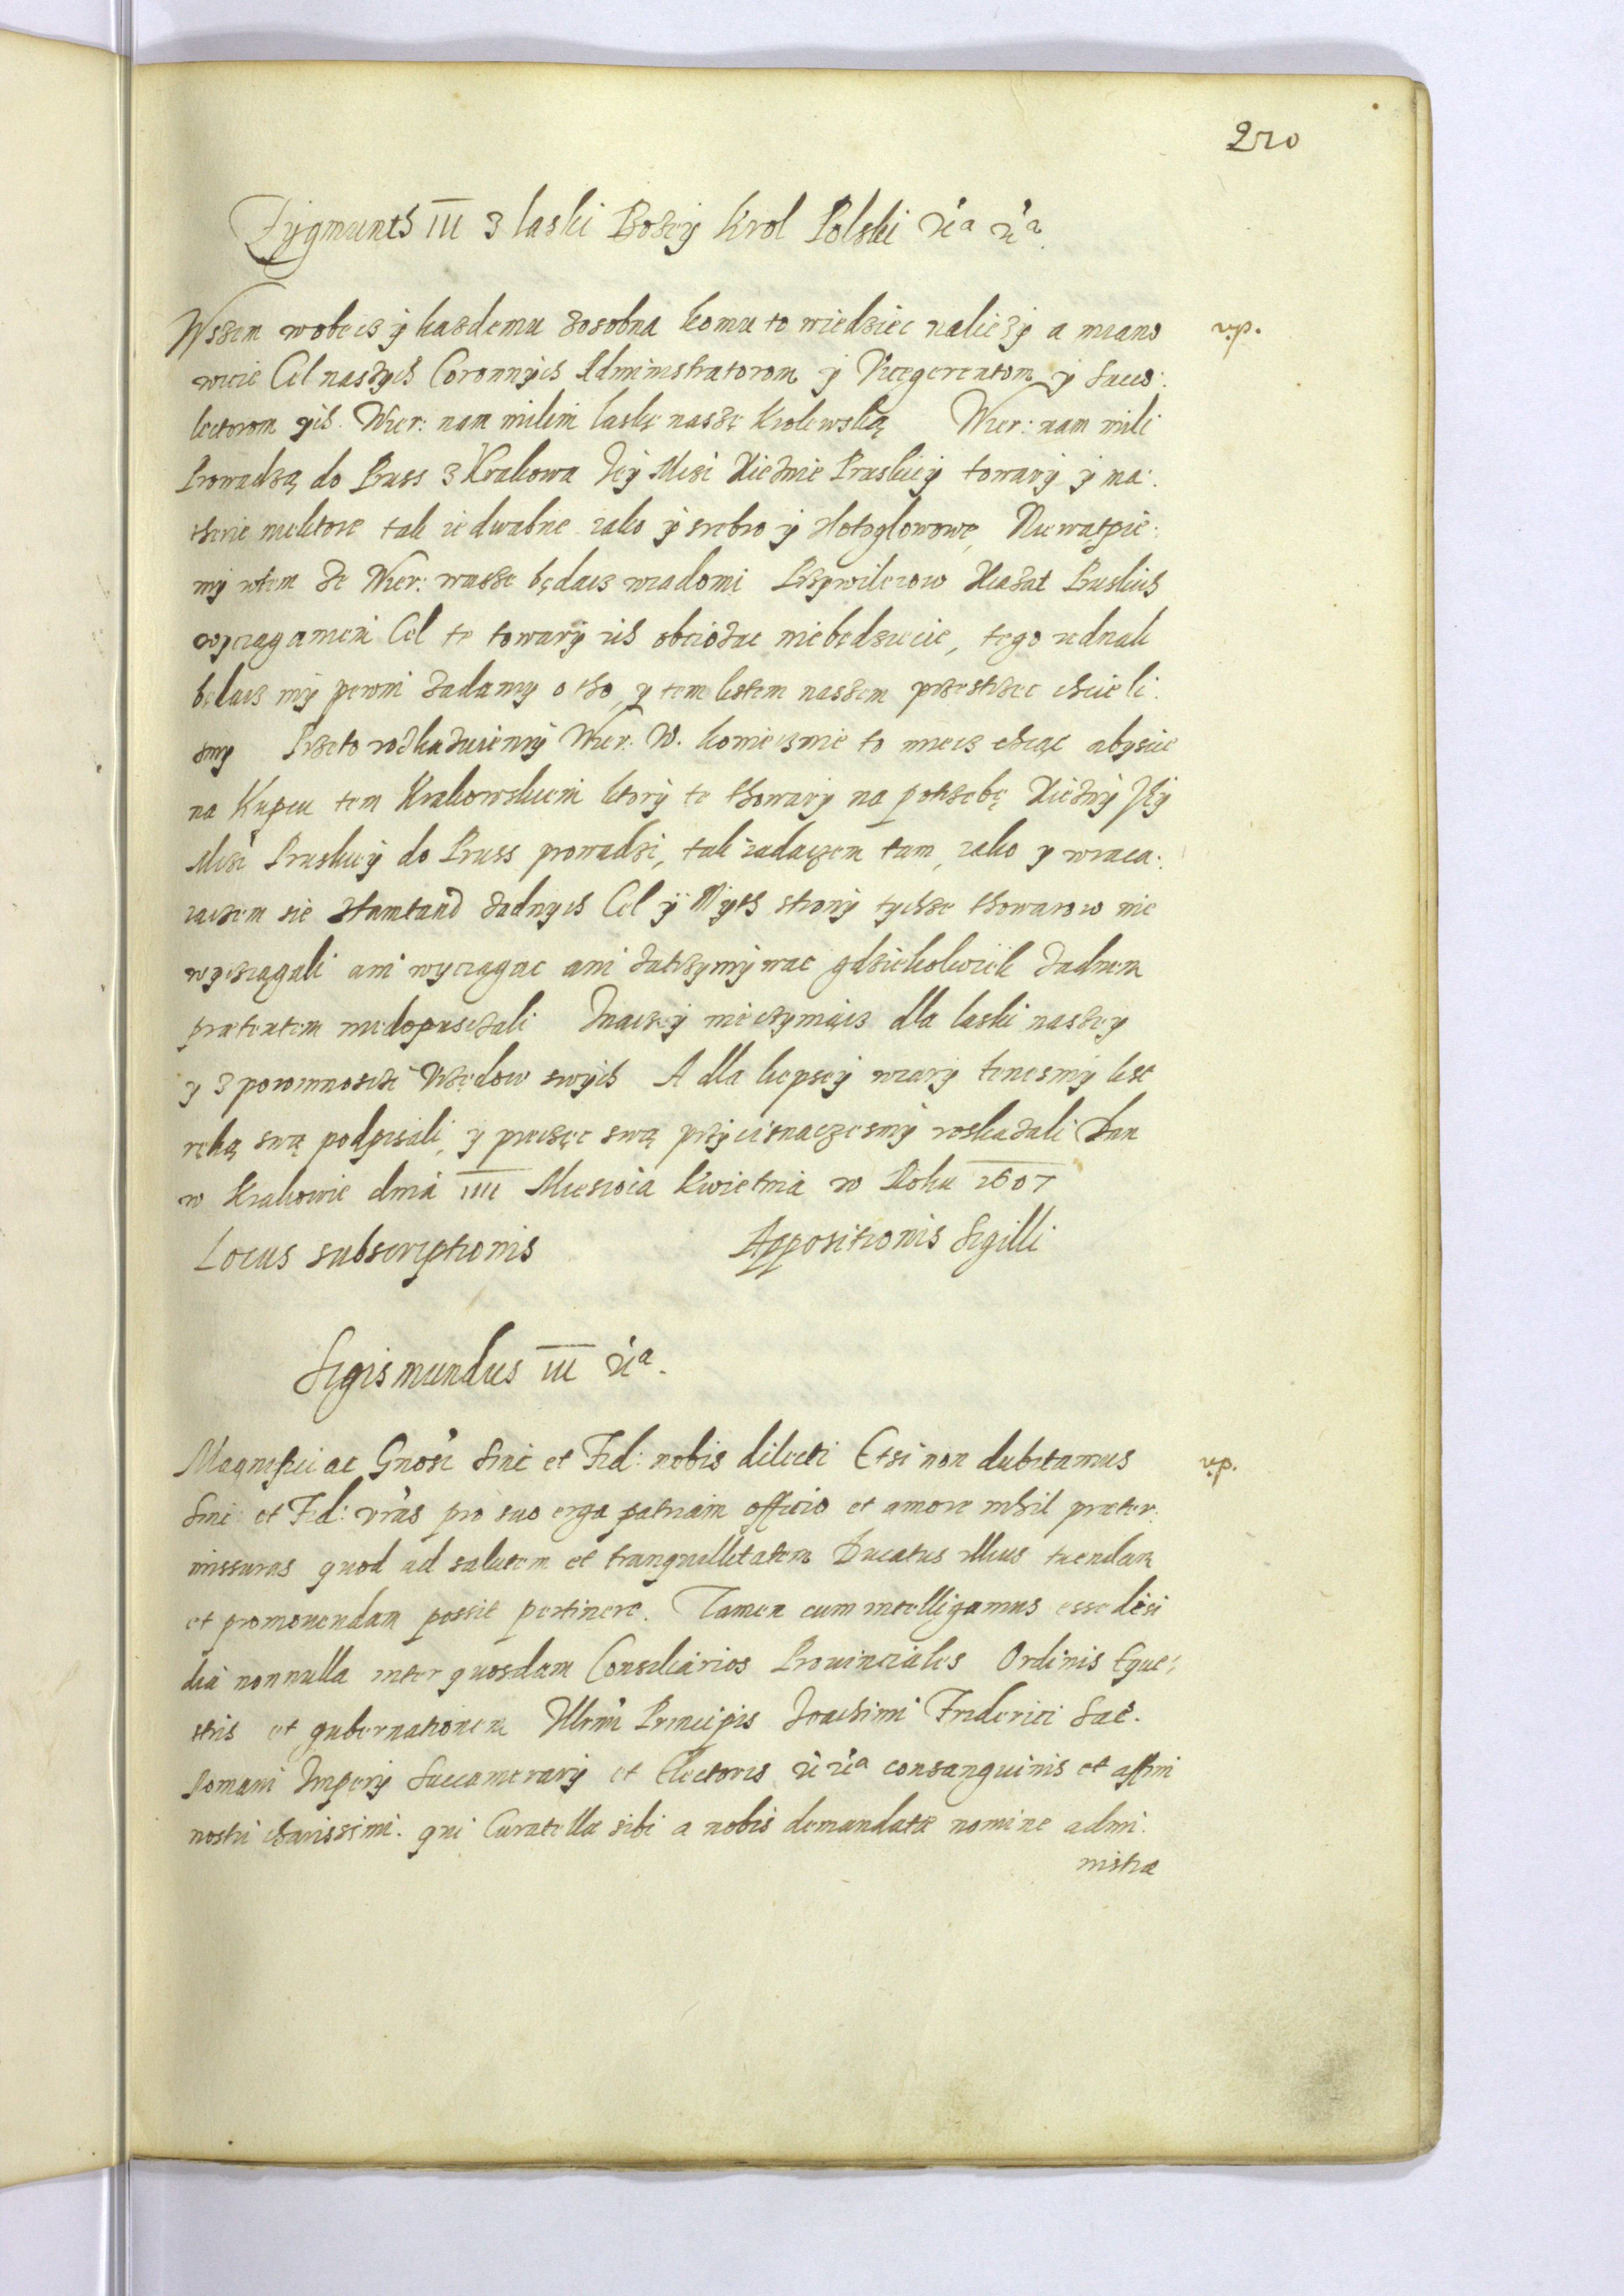 210
Zygmunth III z laski Bozey Krol Polski etca etca.
Wszem wobecz y kazdemu zosobna komu to wiedziec naliezy a miano
vp.
wicie Cel naszych Coronnych Administratorom y Vicegerentom y Succo:
lectorom ich. Wier: nam milim laskę naszę Krolewską Wier: nam mili
Prowadzą do Pruss z Krakowa Jey Msci Xiedznie Pruskiey towary y ma:
therie niektore tak iedwabne iako y srebro y zlotoglowowe, Niewątpie:
my wtem ze Wier: wasze będacz wiadomi Przywileiow Xiazat Pruskich
wyciaganiem Cel te towary ich obciozac niebędziecie, tego iednak
będacz my pewni zadamy o tho, y tem listem naszem przestrzec chcieli:
smy Przeto roskazuiemy Wier. W. koniecznie to miecz chcąc abyscie
na Kupcu tem Krakowskiem ktory te thowary na potrzebę Xiezny Jey
Msci Pruskiey do Pruss prowadzi, tak iadaczem tam, iako y wraca:
iaczem sie ztamtand zadnych Cel y Myth strony tychze thowarow nie
wyciągali ani wyciagac ani zatrzymywac gdziekolwiek zadnem
praetextem niedopusczali Inaczey nieczyniącz dla laski naszey
y z powinnosci Vrzędow swych A dla liepsey wiary tenesmy list
ręką swą podpisali, y pieczęc swą przycisnaczesmy roskazali Dan
w Krakowie dnia IIII Miesiąca Kwietnia w Roku 1607
Locus subscriptionis Appositionis Sigilli
Sigismundus III etca.
Magnifici ac Gnosi Sinc et Fid: nobis dilecti Etsi non dubitamus
vp.
Sinc et Fid: vras pro suo erga patriam officio et amore nihil praeter:
missuras quod ad salutem et tranquillitatem Ducatus illius tuendam
et promouendam possit pertinere. Tamen cum intelligamus esse dissi
dia nonnulla inter quosdam Consiliarios Prouinciales Ordinis Eque:
stris et gubernationem Illmi Principis Joachimi Friderici Sac.
Romani Impery Succamerary et Electoris etc etca consanguinis et affini
nostri charissimi. qui Curatellae sibi a nobis demandatae nomine admi:
nistrae